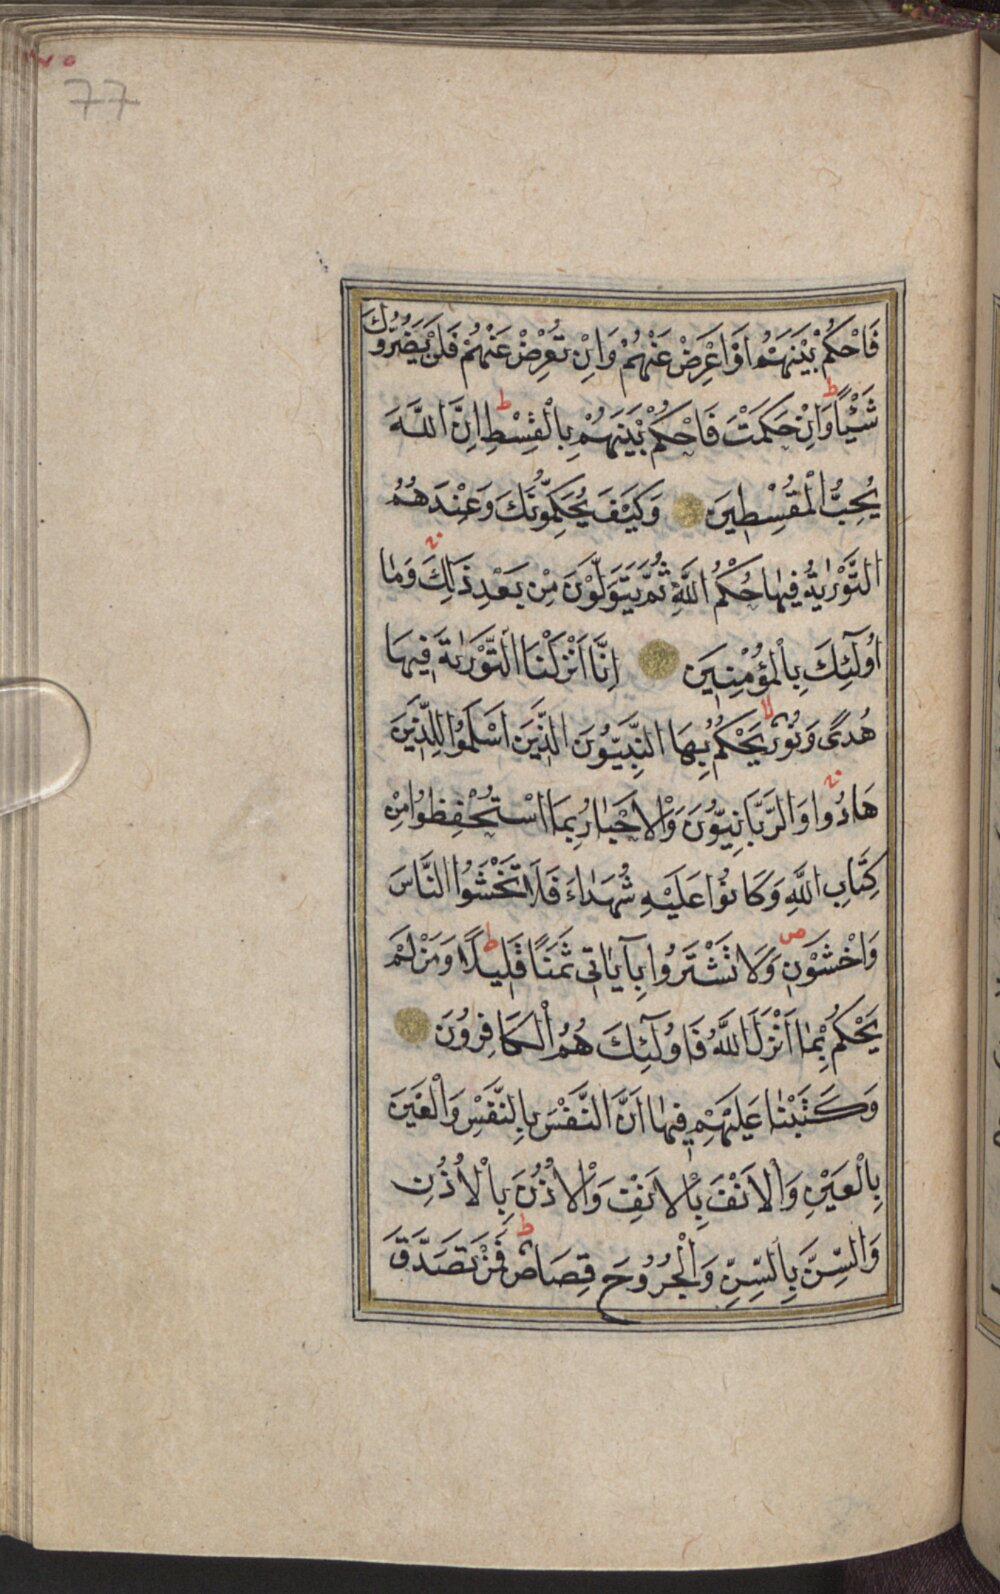 77
فَاحْكُمْ بَيْنَهُمْ اَوْ اَعْرِضْ عَنْهُمْ وَاِنْ تُعْرِضْ عَنْهُمْ فَلَنْ يَضُرُّوكَ
شَيْـًٔا ط وَاِنْ حَكَمْتَ فَاحْكُمْ بَيْنَهُمْ بِالْقِسْطِ ط اِنَّ اللّٰهَ
يُحِبُّ الْمُقْسِطِينَ وَكَيْفَ يُحَكِّمُونَكَ وَعِنْدَهُمُ
التَّوْرٰيةُ فِيهَا حُكْمُ اللّٰهِ ثُمَّ يَتَوَلَّوْنَ مِنْ بَعْدِ ذٰلِكَ وَمَا
اُولٰٓئِكَ بِالْمُؤْمِنِينَ اِنَّا اَنْزَلْنَا التَّوْرٰيةَ فِيهَا
هُدًى وَنُورٌ لا يَحْكُمُ بِهَا النَّبِيُّونَ الَّذِينَ اَسْلَمُوا لِلَّذِينَ
هَادُوا وَالرَّبَّانِيُّونَ وَالْاَحْبَارُ بِمَا اسْتُحْفِظُوا مِنْ
كِتَابِ اللّٰهِ وَكَانُوا عَلَيْهِ شُهَدَاءَ فَلَا تَخْشَوُا النَّاسَ
وَاخْشَوْنِ ص وَلَا تَشْتَرُوا بِآيَاتِى ثَمَنًا قَلِيلًا ط وَمَنْ لَمْ
يَحْكُمْ بِمَا اَنْزَلَ اللّٰهُ فَاُولٰٓئِكَ هُمُ الْكَافِرُونَ
وَكَتَبْنَا عَلَيْهِمْ فِيهَا اَنَّ النَّفْسَ بِالنَّفْسِ وَالْعَيْنَ
بِالْعَيْنِ وَالْاَنْفَ بِالْاَنْفِ وَالْاُذُنَ بِالْاُذُنِ
وَالسِّنَّ بِالسِّنِّ وَالْجُرُوحَ قِصَاصٌ ط فَمَنْ تَصَدَّقَ